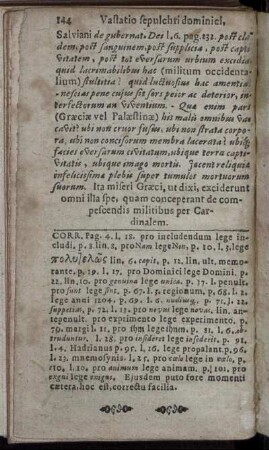 144 Vastatio sepulchri dominici,
Salviani de gubernat. Dei l. 6. pag. 232. post cla-
dem, post sanguinem, post supplicia, post capti
vitatem, post tot eversarum urbium excidia:
quid lacrymabilibus hac (militum occidenta-
lium) stultitia! quid luctuosius hac amentia.
nescias pene cujus sit sors peior ac deterior, in-
terfectorum an viventium. Quæ enim pars
(Græciæ vel Palæstinæ) his malis omnibus va-
cavit? ubi non cruor fusus, ubi non strata corpo-
ra, ubi non concisorum membra lacerata: ubiq;
facies eversarum civitatum, ubique terra capti-
vitatis, ubique imago mortis. Jacent reliquiæ
infelicissimæ plebis super tumulos mortuorum
suorum. Ita miseri Græci, ut dixi, exciderunt
omni illa spe, quam conceperant de com-
pescendis militibus per Car-
dinalem.
CORR. Pag. 4. l. 18. pro includendum lege in-
cludi, p. 8. lin. 2, pro Nam lege Non, p. 10. l. 5. lege
πολυελεῶς lin, 6. rapit, p. 11. lin, ult. memo-
rante. p. 19. l. 17. pro Dominici lege Domini. p.
22. lin, 10. pro genuina lege unita. p. 37. l. penult.
pro sunt lege sint. p. 67. l. 9. regionum, p. 68. l. 2.
lege anni 1204. p. 69. l. 2. p. 71. l. 22.
suppetias, p. 72. l. 13. pro nevas lege novas, lin. an-
tepenult. pro exprimento lege experimento. p.
79. margil l. 11. pro ihm lege ihnen. p. 81. l. 6. ob-
truduntur. l. 28. pro insideret lege insiderit. p. 91.
l. 4. Hadrianus p. 95. l. 16. lege propalant. p. 96.
l. 23. mnemosynis. l. 25. pro cælo lege in cælo, p.
110. l. 10, pro animum lege animam. p. 101. pro
exegui lege exigue. Ejusdem puto fore momenti
cætera, hoc est, correctu facilia.